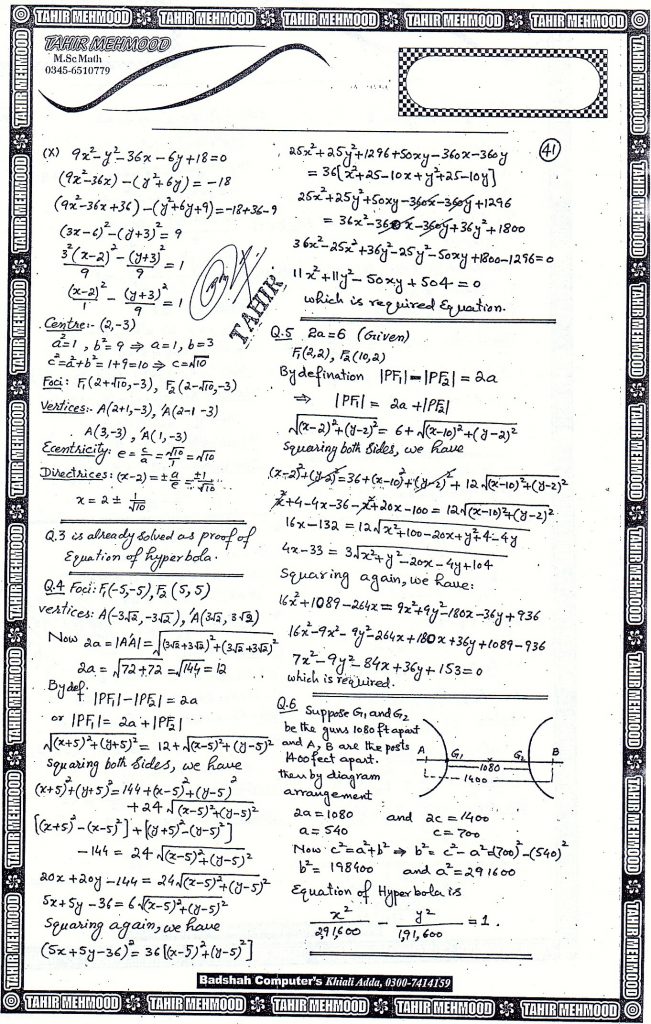 TAHIR MEHMOOD TAHIR MEHMOOD TAHIR MEHMOOD TAHIR MEHMOOD TAHIR MEHMOOD
TAHIR MEHMOOD
M.Sc Math
0345-6510779
(X) 9x²-y²-36x-6y+18=0
(9x²-36x)-(y²+6y)=-18
(9x²-36x+36)-(y²+6y+9)=-18+36-9
(3x-6)²-(y+3)²=9
3²(x-2)²/9 - (y+3)²/9 = 1
(x-2)²/1 - (y+3)²/9 = 1
TAHIR
Centre:- (2,-3)
a²=1, b²=9 ⇒ a=1, b=3
c²=a²+b²=1+9=10 ⇒ c=√10
Foci: F₁(2+√10,-3), F₂(2-√10,-3)
Vertices:- A(2+1,-3), 'A(2-1 -3)
A(3,-3), 'A(1,-3)
Ecentricity: e = c/a = √10/1 = √10
Directrices: (x-2) = ± a/e = ±1/√10
x = 2 ± 1/√10
Q.3 is already solved as proof of
Equation of hyperbola.
Q.4 Foci: F₁(-5,-5), F₂(5,5)
vertices: A(-3√2,-3√2), 'A(3√2, 3√2)
Now 2a = |A'A| = √(3√2+3√2)²+(3√2+3√2)²
2a = √72+72 = √144 = 12
By def.
|PF₁|-|PF₂| = 2a
or |PF₁| = 2a+|PF₂|
√(x+5)²+(y+5)² = 12+√(x-5)²+(y-5)²
Squaring both Sides, we have
(x+5)²+(y+5)²=144+(x-5)²+(y-5)²
+24√(x-5)²+(y-5)²
[(x+5)²-(x-5)²]+[(y+5)²-(y-5)²]
-144 = 24√(x-5)²+(y-5)²
20x+20y-144 = 24√(x-5)²+(y-5)²
5x+5y-36 = 6√(x-5)²+(y-5)²
Squaring again, we have
(5x+5y-36)² = 36[(x-5)²+(y-5)²]
41
25x²+25y²+1296+50xy-360x-360y
= 36[x²+25-10x+y²+25-10y]
25x²+25y²+50xy-360x-360y+1296
= 36x²-360x-360y+36y²+1800
36x²-25x²+36y²-25y²-50xy+1800-1296=0
11x²+11y²-50xy+504=0
which is required Equation.
Q.5 2a=6 (Given)
F₁(2,2), F₂(10,2)
By defination |PF₁|-|PF₂| = 2a
⇒ |PF₁| = 2a+|PF₂|
√(x-2)²+(y-2)² = 6+√(x-10)²+(y-2)²
Squaring both Sides, we have
(x-2)²+(y-2)²=36+(x-10)²+(y-2)²+12√(x-10)²+(y-2)²
x²+4-4x-36-x²+20x-100 = 12√(x-10)²+(y-2)²
16x-132 = 12√x²+100-20x+y²+4-4y
4x-33 = 3√x²+y²-20x-4y+104
Squaring again, we have:
16x²+1089-264x=9x²+9y²-180x-36y+936
16x²-9x²-9y²-264x+180x+36y+1089-936
7x²-9y²-84x+36y+153=0
which is required.
Q.6 Suppose G₁ and G₂
be the guns 1080 ft apart
and A, B are the posts
1400 feet apart.
then by diagram
arrangement
A G₁ G₂ B
1080
1400
2a=1080 and 2c=1400
a=540 c=700
Now c²=a²+b² ⇒ b²=c²-a²=(700)²-(540)²
b²=198400 and a²=291600
Equation of Hyperbola is
x²/291,600 - y²/1,91,600 = 1.
Badshah Computer's Khiali Adda, 0300-7414159
TAHIR MEHMOOD TAHIR MEHMOOD TAHIR MEHMOOD TAHIR MEHMOOD TAHIR MEHMOOD